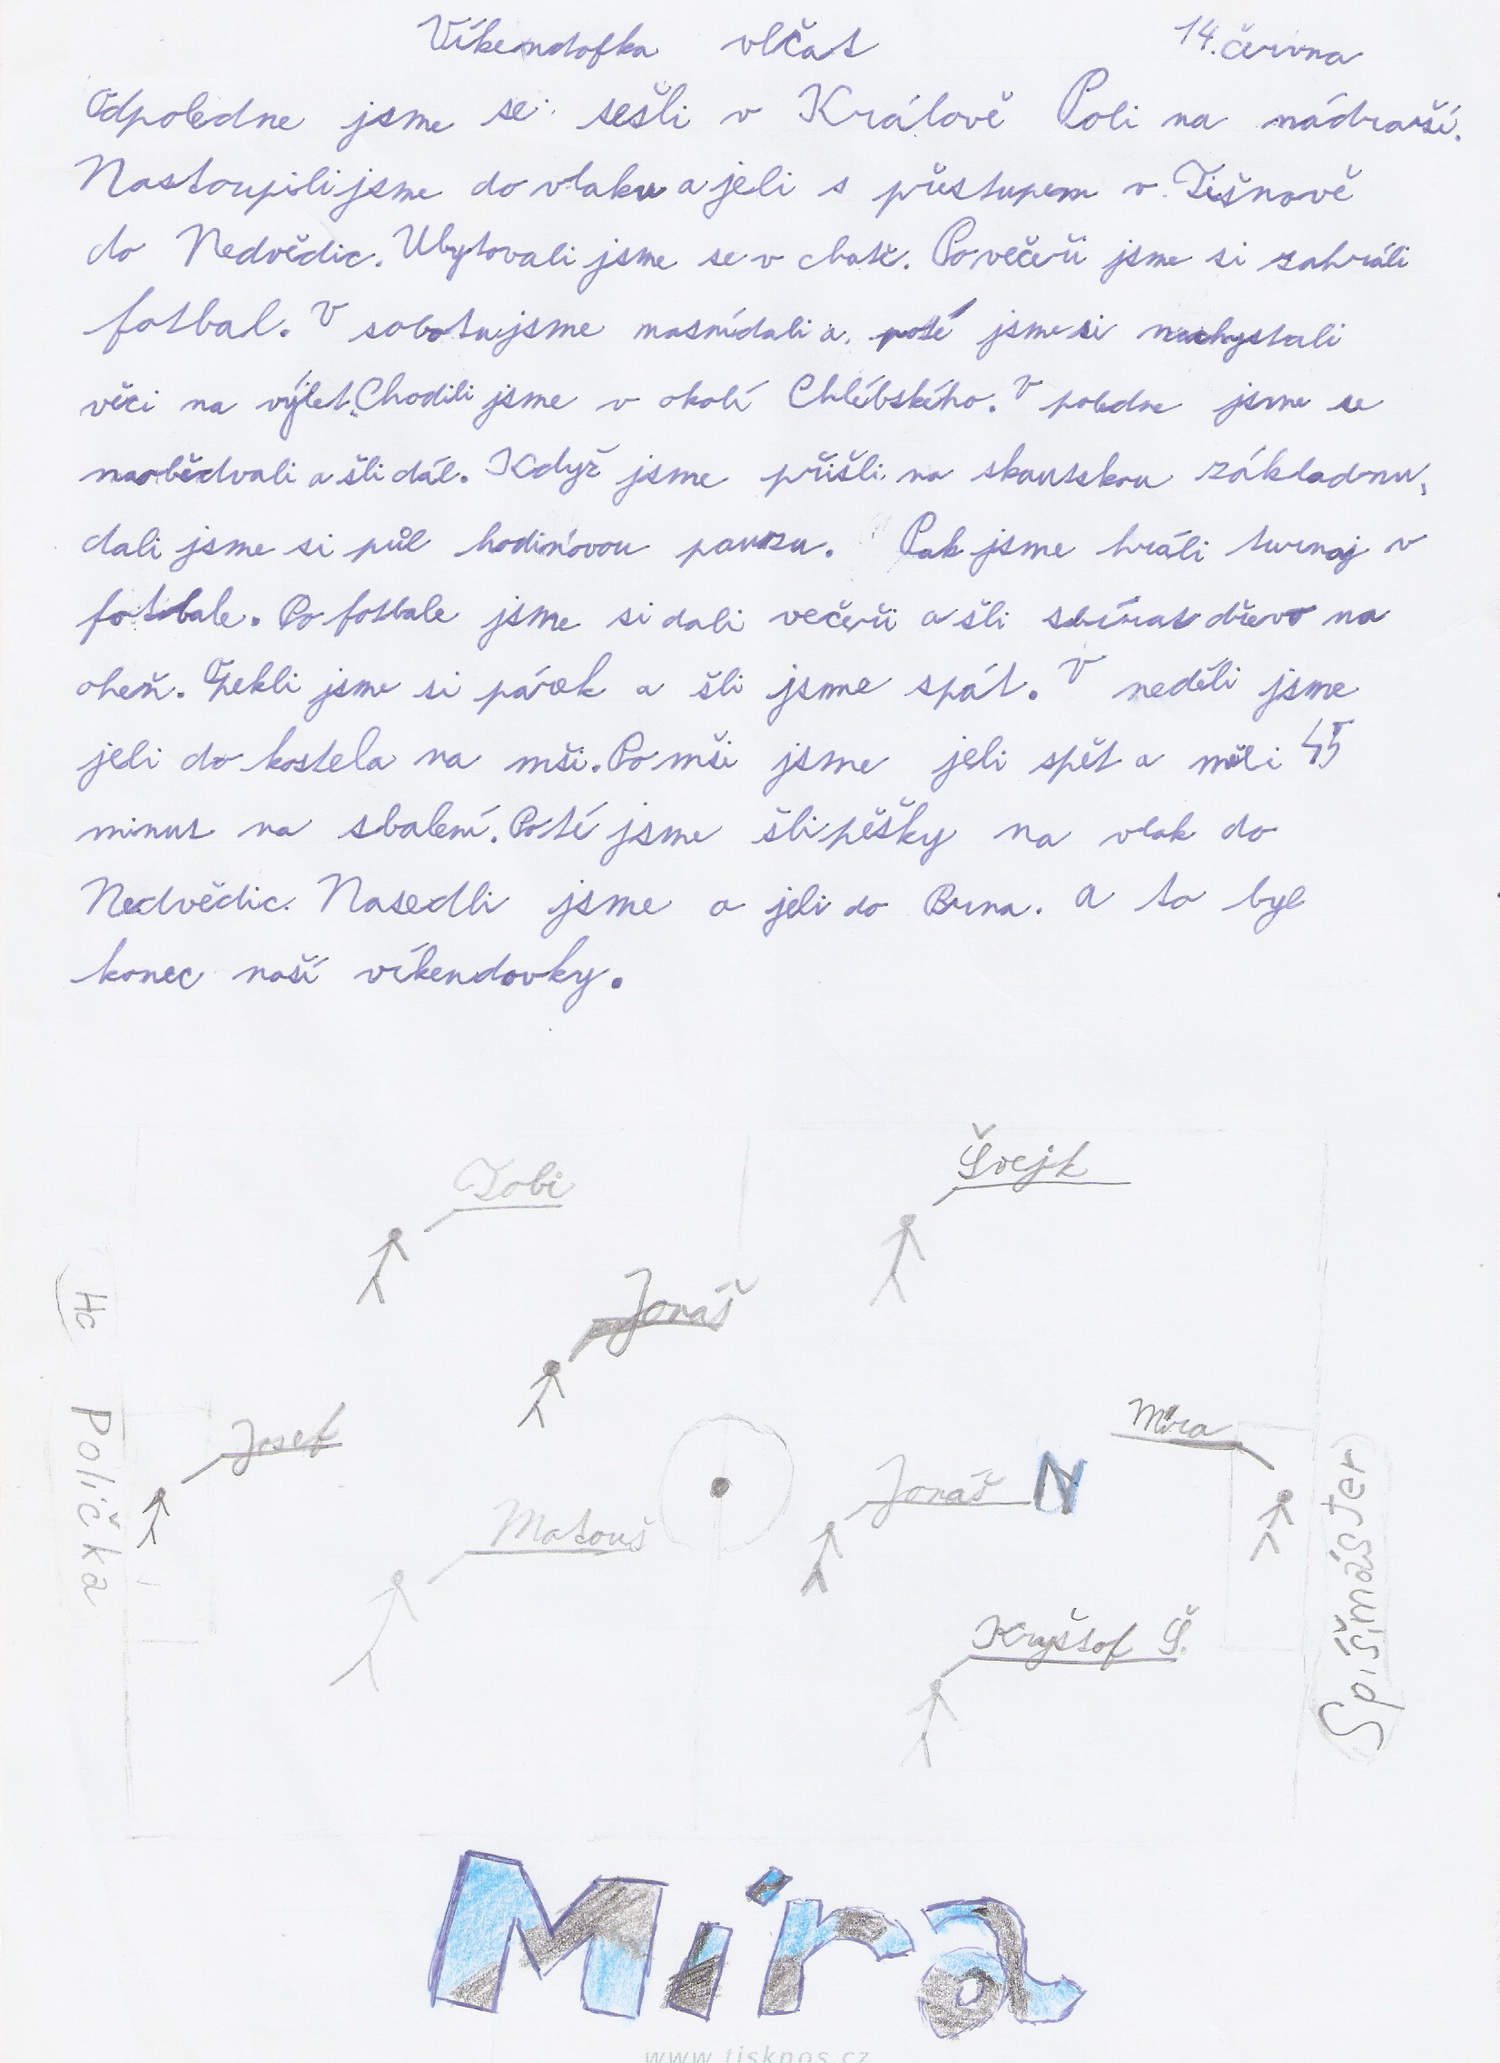 Víkendofka vlčat 14. června
Odpoledne jsme se sešli v Králově Poli na nádraší.
Nastoupili jsme do vlaku a jeli s přstupem v Tišnově
do Nedvědic. Ubytovali jsme se v chatě. Po večeři jsme si zahráli
fotbal. V sobotu jsme nasnídali a poté jsme si nachystali
věci na výlet. Chodili jsme v okolí Chlébského. V poledne jsme se
naobědvali a šli dál. Když jsme přišli na skautskou základnu,
dali jsme si půl hodinovou pauzu. Pak jsme hráli turnaj v
fotbale. Po fotbale jsme si dali večeři a šli sbírat dřevo na
oheň. Opekli jsme si párek a šli jsme spát. V neděli jsme
jeli do kostela na mši. Po mši jsme jeli spět a měli 45
minut na sbalení. Poté jsme šli pěšky na vlak do
Nedvědic. Nasedli jsme a jeli do Brna. a to byl
konec naší víkendovky.
Švejk
Tobi
Jonáš
Hc Polička
Josef
Míra
Jonáš N
Matouš
Spíšmáster
Kryštof Š.
Míra
www.tisknos.cz